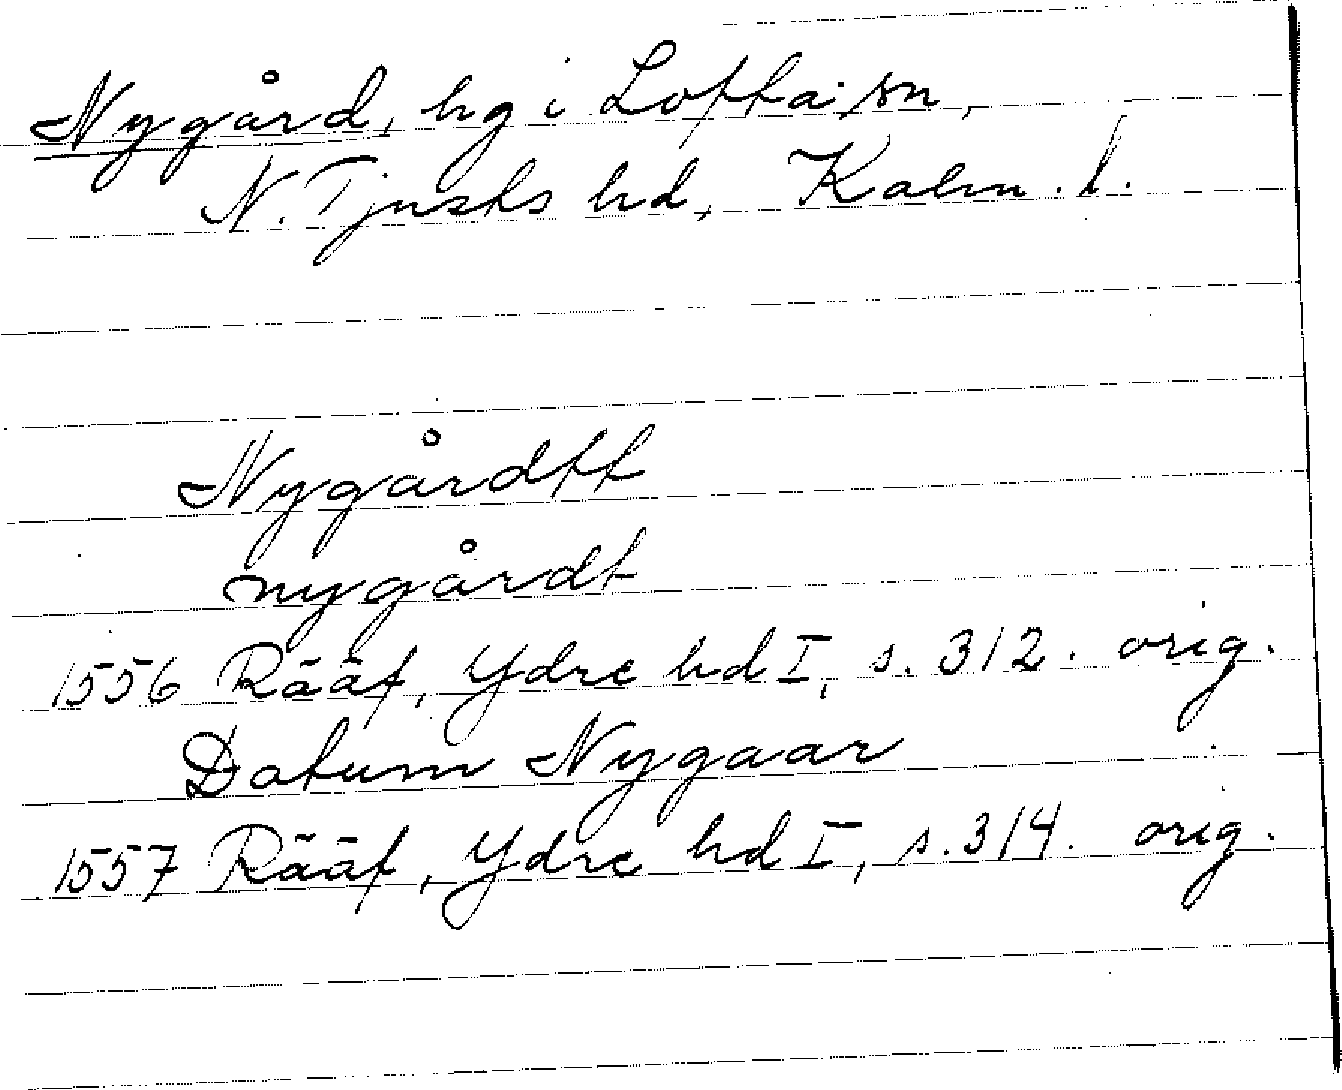 Nygård, hg i Lofta sn,
N. Tjusts hd, Kalm. l.
Nygårdtt
nygårdt
1556 Rääf, Ydre hd I, s. 312. orig.
Datum Nygaar
1557 Rääf, Ydre hd I, s. 314. orig.